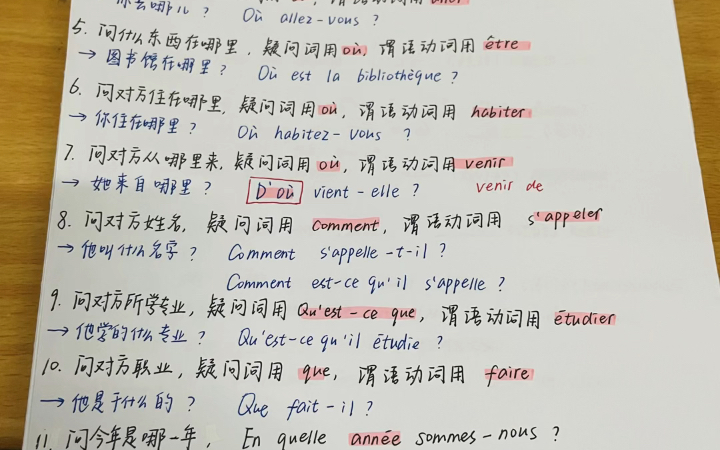 你去哪儿？ Où allez-vous ?
5. 问什么东西在哪里，疑问词用où，谓语动词用 être
→ 图书馆在哪里？ Où est la bibliothèque ?
6. 问对方住在哪里，疑问词用où，谓语动词用 habiter
→ 你住在哪里？ Où habitez-vous ?
7. 问对方从哪里来，疑问词用 où，谓语动词用 venir
→ 她来自哪里？ D'où vient-elle ? venir de
8. 问对方姓名，疑问词用 comment，谓语动词用 s'appeler
→ 他叫什么名字？ Comment s'appelle-t-il ?
Comment est-ce qu'il s'appelle ?
9. 问对方所学专业，疑问词用 Qu'est-ce que，谓语动词用 étudier
→ 他学的什么专业？ Qu'est-ce qu'il étudie ?
10. 问对方职业，疑问词用 que，谓语动词用 faire
→ 他是干什么的？ Que fait-il ?
11. 问今年是哪一年， En quelle année sommes-nous ?